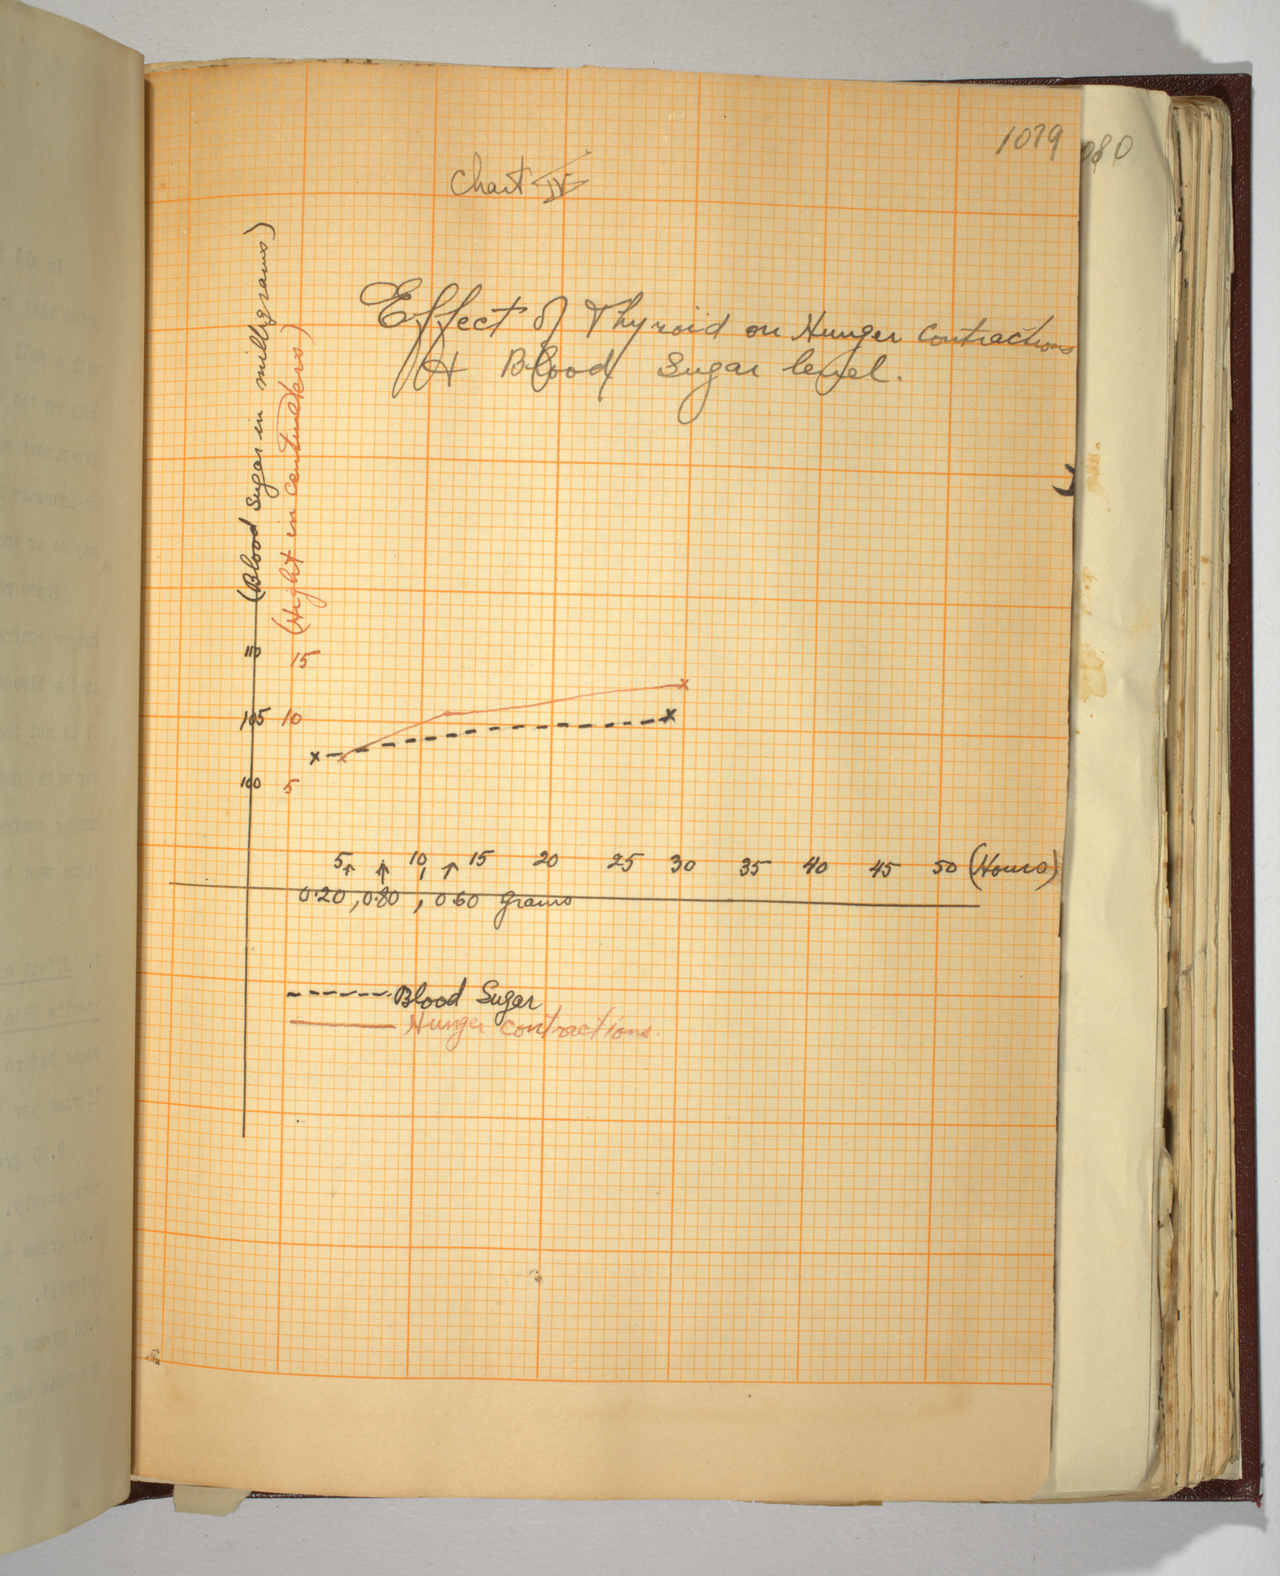 1079
080
Chart IV
Effect of Thyroid on Hunger Contractions
& Blood Sugar level.
(Blood Sugar in milligrams)
(Hight in centimeters)
110 15
105 10
100 5
5 10 15 20 25 30 35 40 45 50 (Hours)
0.20, 0.80, 0.60 grams
Blood Sugar
Hunger contractions.